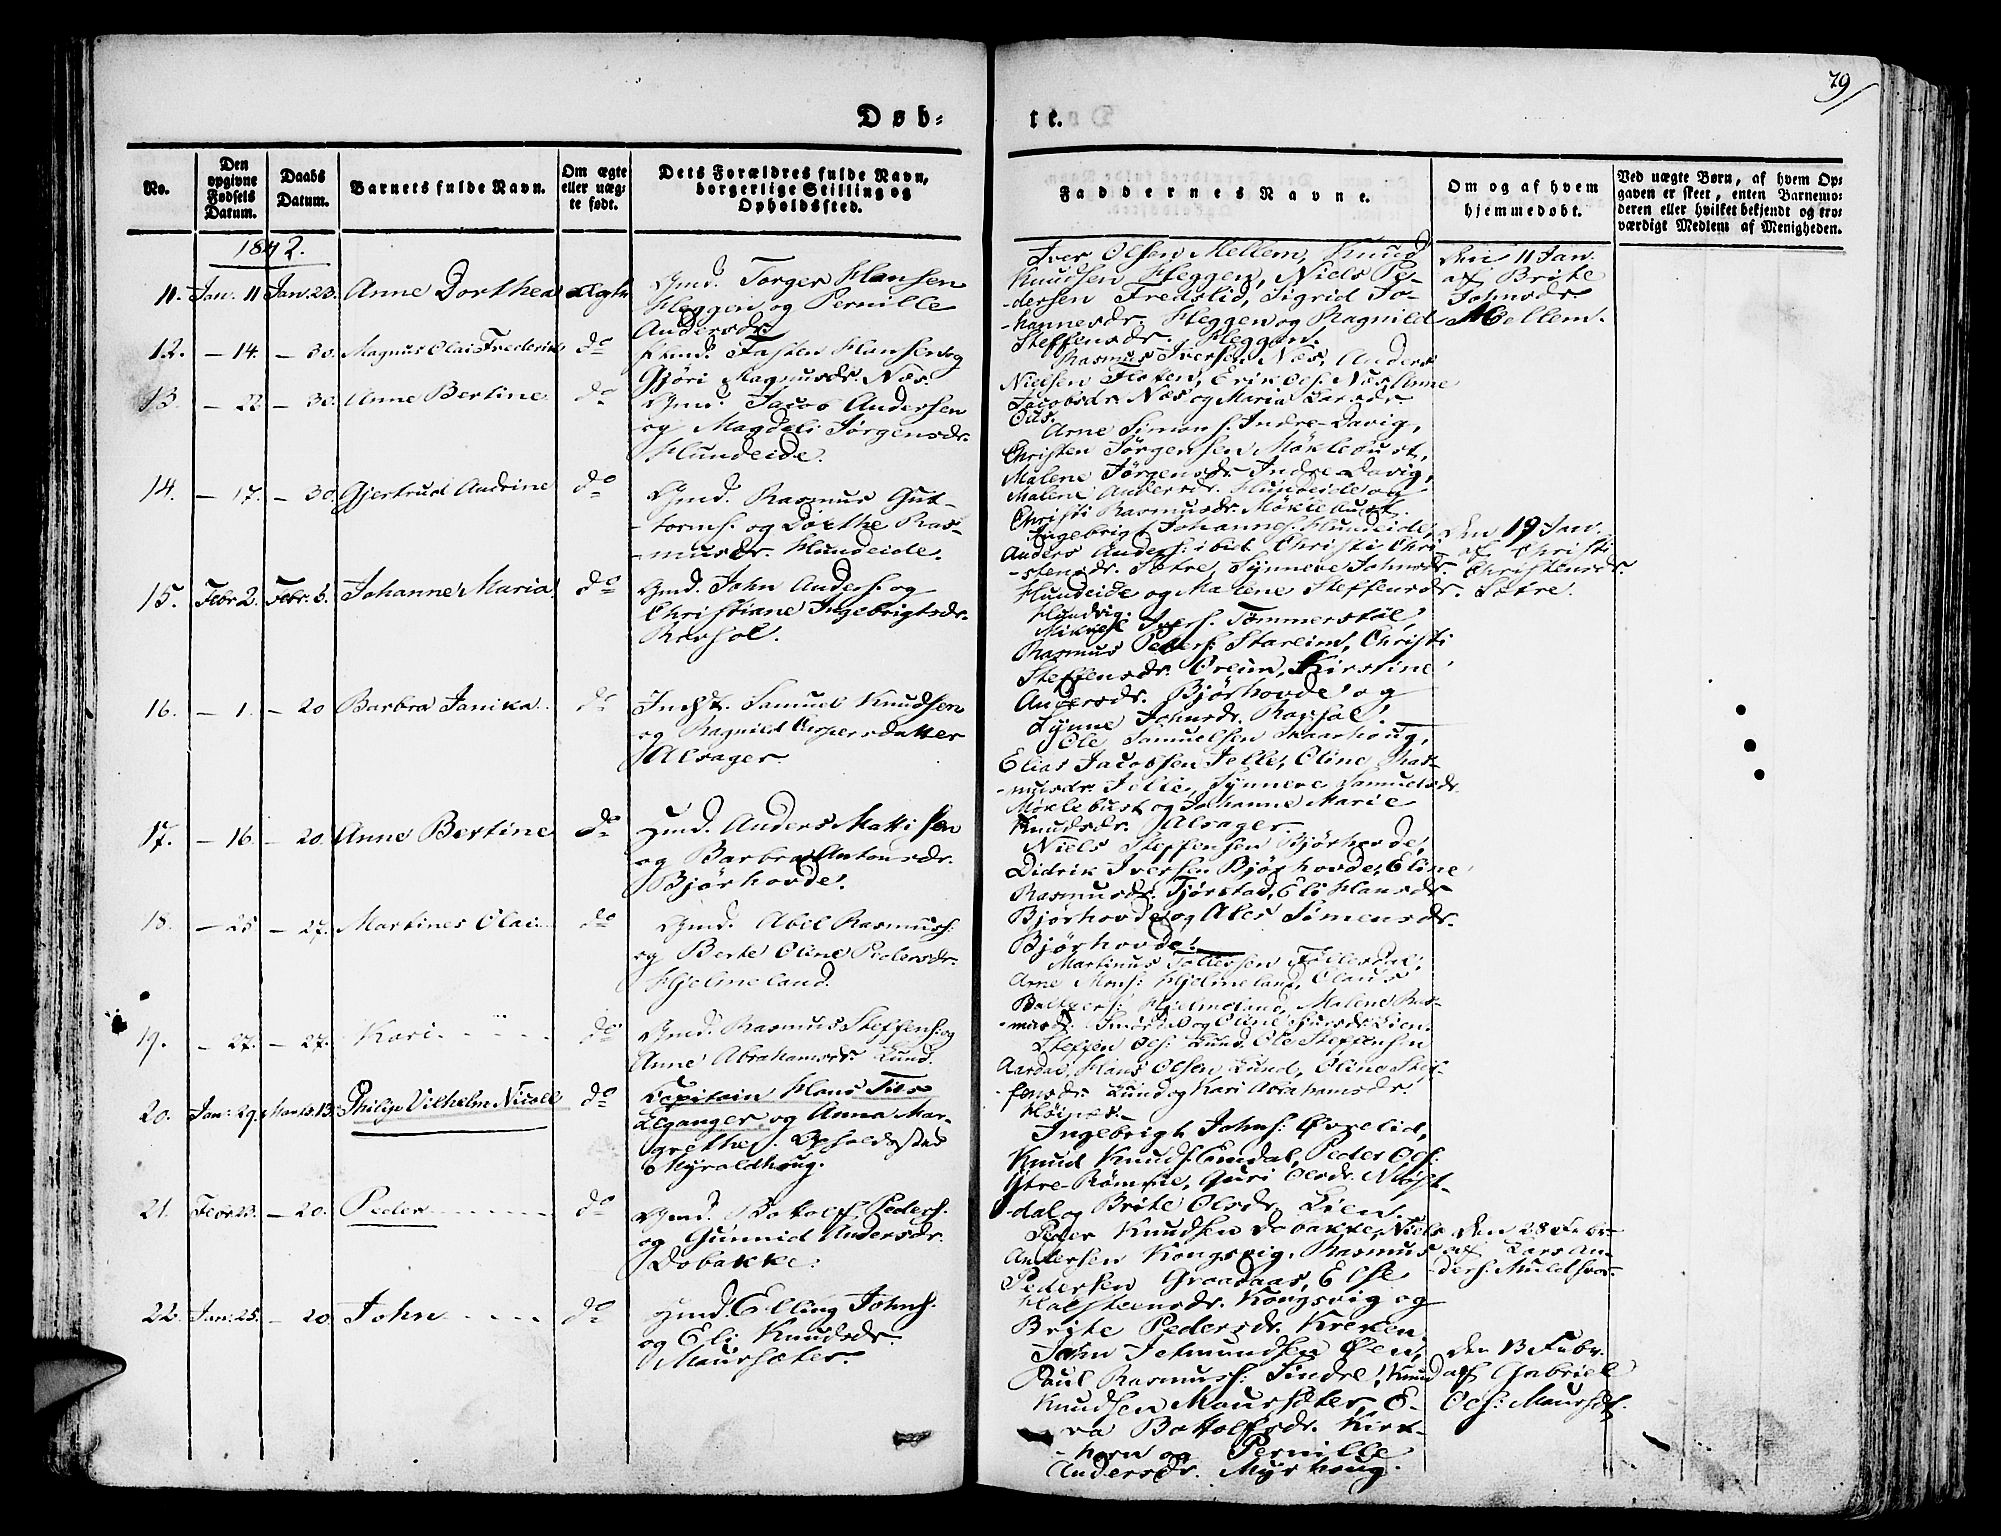 79
Døb-
te.
No.
Den
opgivne
Fødsels
Datum.
Daabs
Datum.
Barnets fulde Navn.
Om ægte
eller uæg-
te født.
Dets Forældres fulde Navn,
borgerlige Stilling og
Opholdssted.
Faddernes Navne.
Om og af hvem
hjemmedøbt.
Ved uægte Børn, af hvem Op-
gaven er skeet, enten Barnemo-
deren eller hvilket bekjendt og tro-
værdigt Medlem af Menigheden.
1842.
11. Jan. 11 Jan. 23. Anne Dorthea ægte
Gmd. Torger Hansen
Heggen og Pernille
Andersdr.
Iver Olsen Mellem, Knud
Knudsen Heggen, Niels Pe-
dersen Fredslid, Sigrid Jo-
hannesdr. Heggen og Ragnild
Steffensdr. Heggen.
Den 11 Jan.
af Brite
Johnsdr.
Mellem.
12. - 14. - 30. Magnus Olai Frederik do
Fasten Hansen og
Gjøri Rasmusdr. Næs.
Rasmus Iversen Næs, Anders
Nielsen Floten, Erik Ols: Næs, Anne
Jacobsdr. Næs og Maria Larsdr.
Ous.
13. - 22 - 30. Anne Bertine do
Gmd. Jacob Andersen
og Magdeli Jørgensdr.
Hundeide.
Arne Simons: Indre-Davig,
Christen Jørgensen Møklebust,
Malene Jørgensdr. Indre Davig,
Malene Andersdr. Hundeide og
Christi Rasmusdr. Møklebust.
14. - 17. - 30. Gjertrud Andrine do
Gmd. Rasmus Gut-
torms. og Dorthe Ras-
musdr. Hundeide.
Ingebrigt Johannes: Hundeide,
Anders Anders: ibid Christi Chri-
stensdr. Sætre, Synneve Johnsdr.
Hundeide og Malene Steffensdr.
Hundvig.
Den 19 Jan.
af Christi
Christensdr.
Sætre.
15. Febr 2. Febr. 6. Johanne Maria do
Gmd. John Anders: og
Christiane Ingebrigtsdr.
Ravsol.
Mikkel Ivers: Tømmerstøl,
Rasmus Peders: Stareim, Christi
Steffensdr. Øreim, Kirstine
Andersdr. Bjørhovde og
Synne Johnsdr.
16. - 1. - 20 Barbra Janika do
Samuel Knudsen
og Ragnild Caspersdatter
Alsager.
Ole Samuelsen Skaarhoug,
Elias Jacobsen Jelle, Oline Ras-
musdr. Jelle, Synneve Samuelsdr.
Møklebust og Johanne Marie
Knudsdr. Alsager.
17. - 16. - 20. Anne Bertine do
Gmd. Anders Mattisen
og Barbra Antonsdr.
Bjørhovde.
Niels Steffensen Bjørhovde,
Didrik Iversen Bjørhovde, Eline
Rasmusdr. Tjørstad, Eli Hansdr.
Bjørhovde og Ales Simensdr.
Bjørhovde.
18. - 25 - 27. Martines Olai do
Gmd. Abel Rasmuss:
og Berte Oline Pedersdr.
Hjelmeland.
Martinus Tollefsen
Arne Mons: Hjelmeland, Claus
Hjelmeland, Malene Ras-
musdr. og Oline
19. - 27. - 27. Kari do
Gmd. Rasmus Steffens: og
Anne Abrahamsdr. Lund.
Steffen Ols: Lund, Ole Steffensen
Aardal, Hans Olsen Lund, Oline Stef-
fensdr. Lund og Kari Abrahamsdr.
Høines.
20. Jan: 29. Marts. 13. Philip Vilhelm Nicoll do
Kapitain Hans Tiis
Elganger, og Anna Mar-
grethe. Opholdssted
Myraldhoug.
Ingebrigt Johns: Øvrelid,
Knud Knuds: Emdal, Peder Ols:
Ytre-Rømme, Guri Olsdr. Møst-
dal og Brite Olsdr. Lien.
21. Febr 23. - 20. Peder do
Gmd. Botolf Peders:
og Gunnild Andersdr.
Dobakke.
Peder Knudsen Dobakke, Niels
Andersen Kongsvig, Rasmus
Pedersen Graadaas, Else
Halsteensdr. Kongsvig og
Brite Pedersdr. Kreken.
Den 28 Febr.
af Lars An-
ders: Muldsvor.
22. Jan: 25. - 20. John do
Gmd. Elling Johns.
og Eli Knudsdr.
Maursæter.
John Jetmundsen Øen,
Paul Rasmuss: Sindre, Knud
Knudsen Maursæter, E-
va Bottolfsdr. Kirk-
horn og Pernille
Andersdr. Myrhoug.
Den 13 Febr.
af Gabriel
Ols: Maurset.